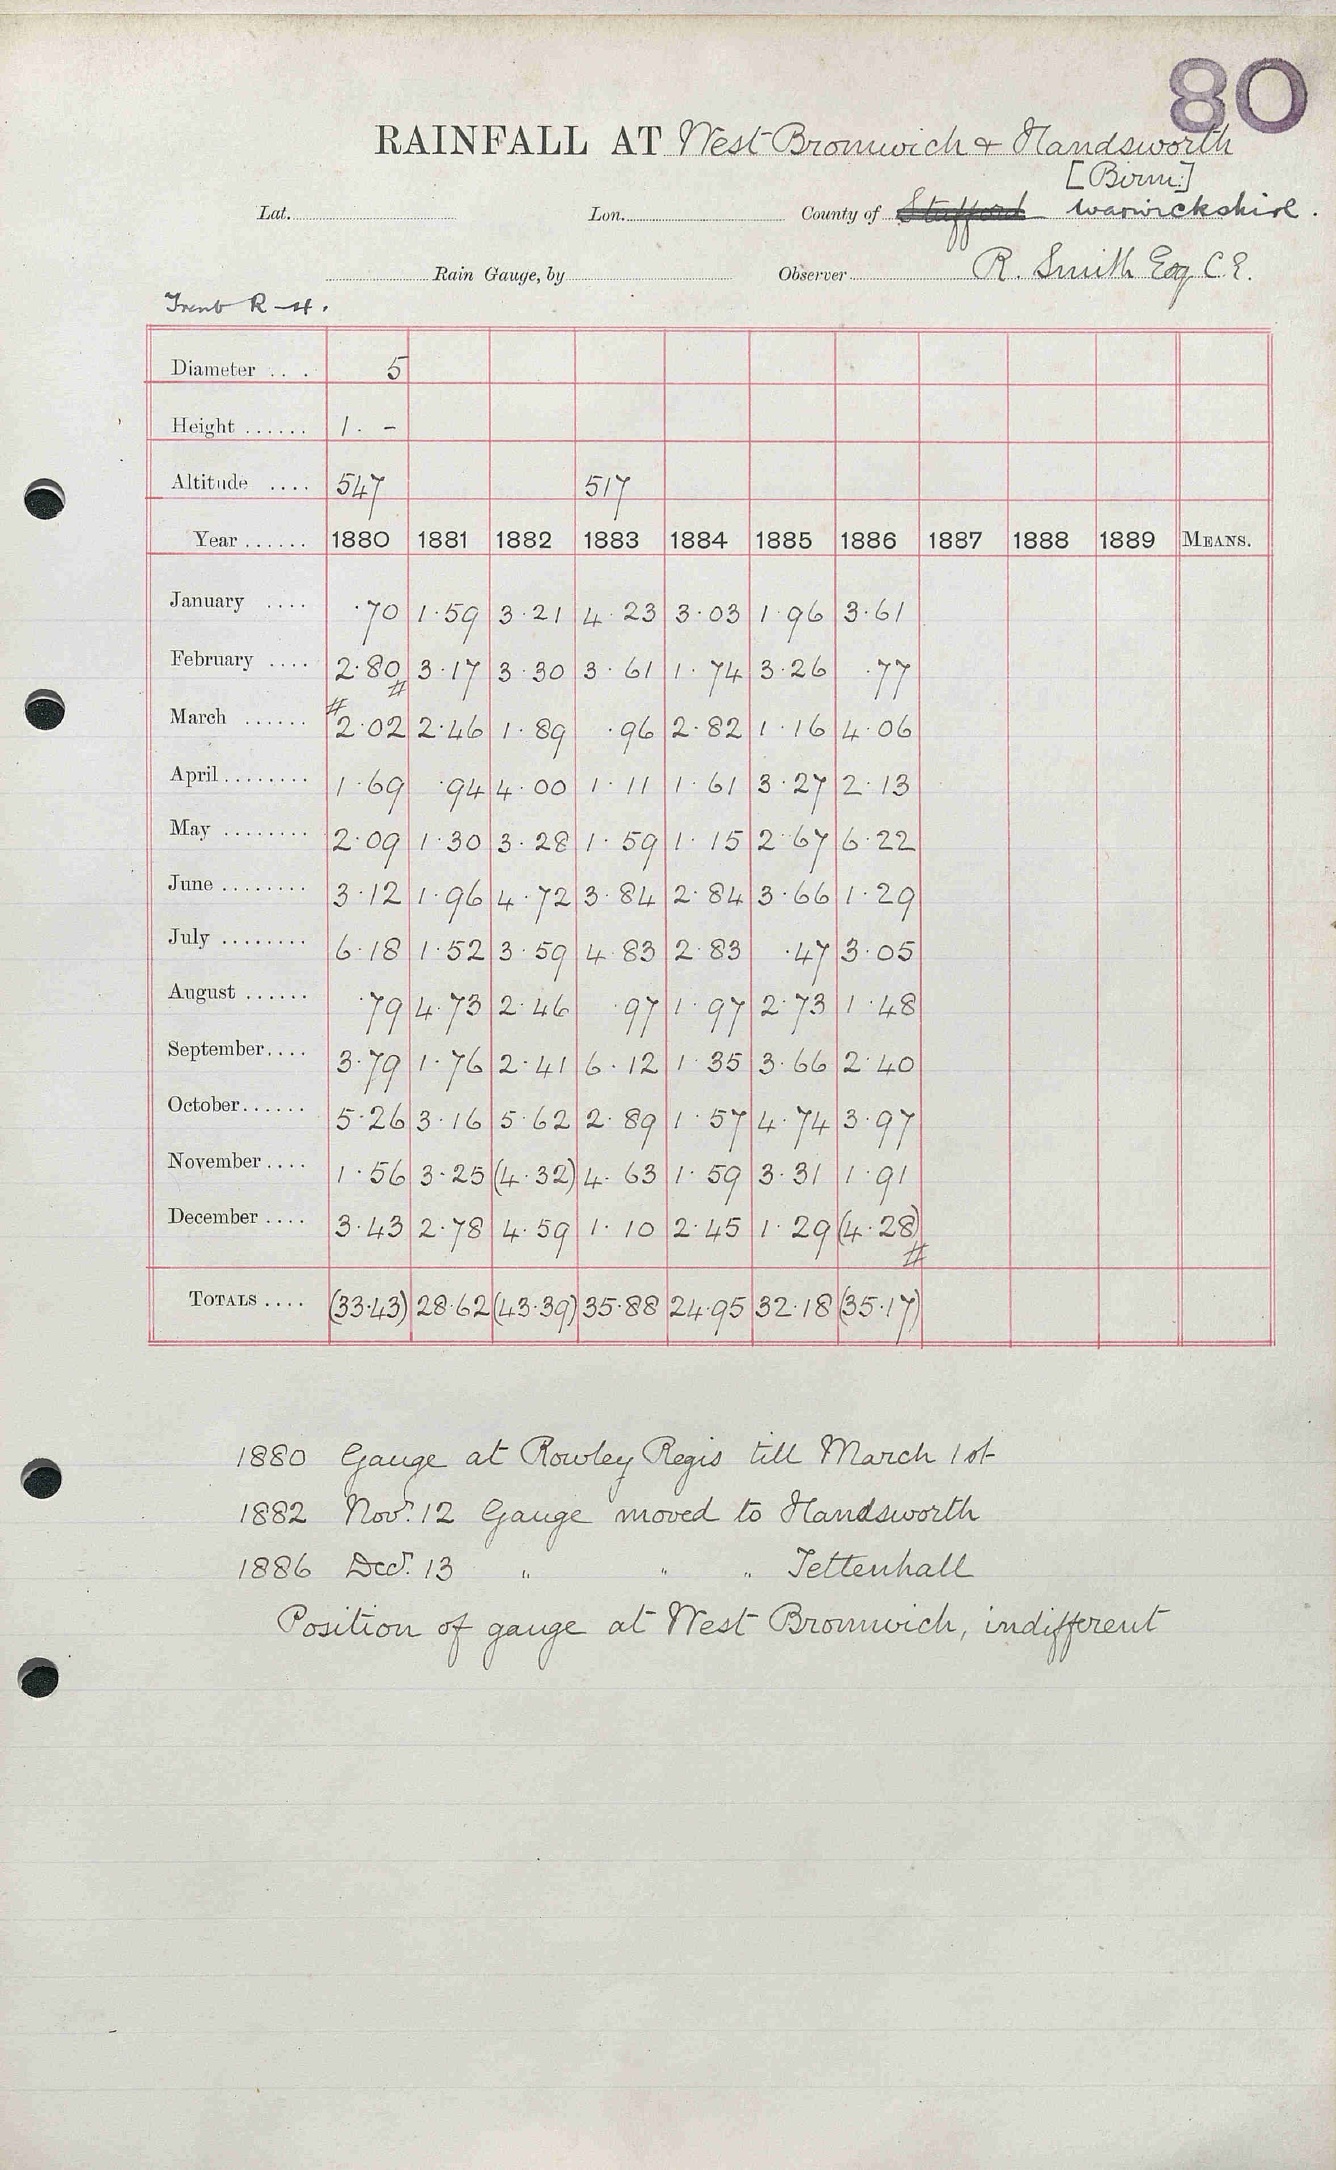 80
RAINFALL AT West Bromwich & Handsworth
[Birm:]
Lat. Lon. County of Stafford Warwickshire.
Rain Gauge, by Observer R. Smith Esq C.E.
Trent R
Diameter ... 5
Height ...... 1. -
Altitude .... 547 517
Year ...... 1880 1881 1882 1883 1884 1885 1886 1887 1888 1889 MEANS.
January .... ·70 1·59 3·21 4·23 3·03 1·96 3·61
February .... 2·80 3·17 3·30 3·61 1·74 3·26 ·77
March ...... 2·02 2·46 1·89 ·96 2·82 1·16 4·06
April ........ 1·69 ·94 4·00 1·11 1·61 3·27 2·13
May ........ 2·09 1·30 3·28 1·59 1·15 2·67 6·22
June ........ 3·12 1·96 4·72 3·84 2·84 3·66 1·29
July ........ 6·18 1·52 3·59 4·83 2·83 ·47 3·05
August ...... ·79 4·73 2·46 ·97 1·97 2·73 1·48
September.... 3·79 1·76 2·41 6·12 1·35 3·66 2·40
October...... 5·26 3·16 5·62 2·89 1·57 4·74 3·97
November .... 1·56 3·25 (4·32) 4·63 1·59 3·31 1·91
December .... 3·43 2·78 4·59 1·10 2·45 1·29 (4·28)
TOTALS .... (33·43) 28·62 (43·39) 35·88 24·95 32·18 (35·17)
1880 Gauge at Rowley Regis till March 1st
1882 Novr. 12 Gauge moved to Handsworth
1886 Decr. 13 " " " Tettenhall
Position of gauge at West Bromwich, indifferent